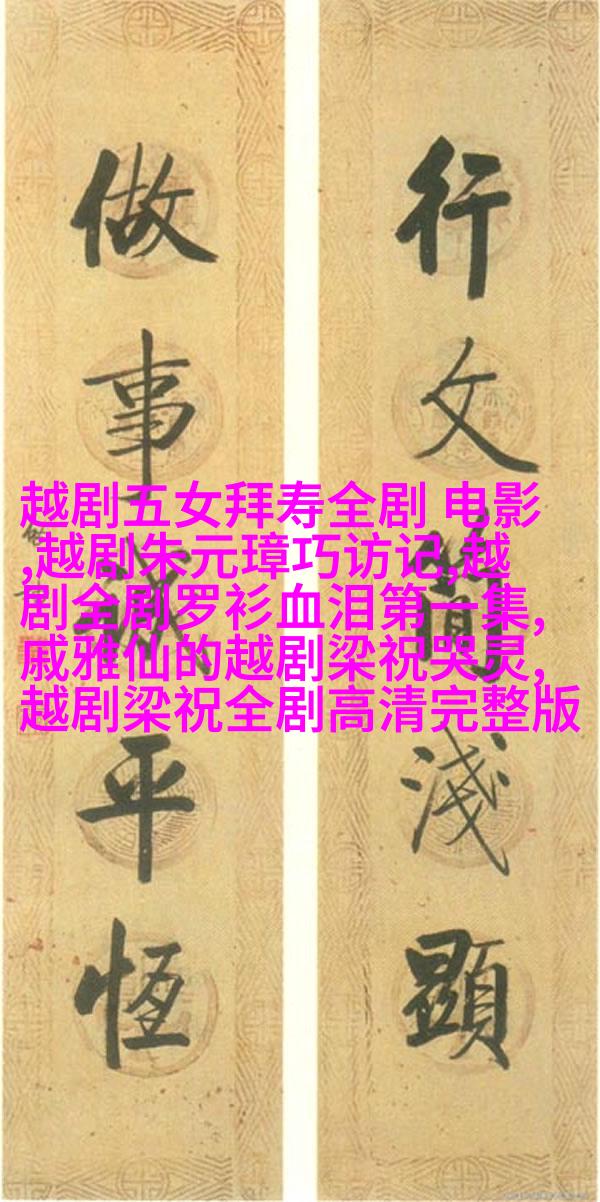 行文簡淺顯
做事誠平恆
越剧五女拜寿全剧 电影
,越剧朱元璋巧访记,越
剧全剧罗衫血泪第一集,
戚雅仙的越剧梁祝哭灵,
越剧梁祝全剧高清完整版